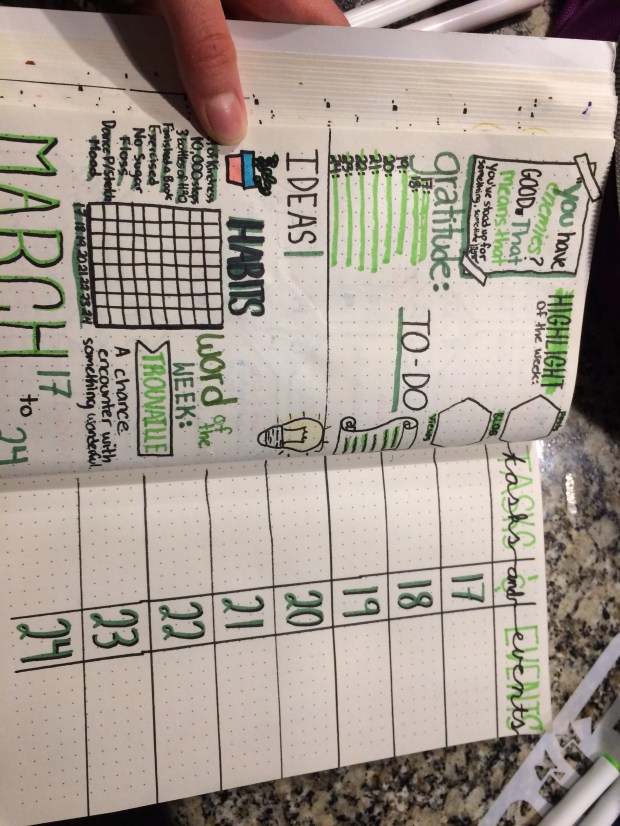 MARCH 17
to 24
HABITS
10,000 steps
3 bottles of H2O
Finished a book
Exercised
No Sugar
Floss
Mood
17 18 19 20 21 22 23 24
Word of the
WEEK:
TROUVAILLE
A chance
encounter with
something wonderful.
IDEAS
gratitude:
17:
18:
19:
20:
21:
22:
23:
24:
TO-DO
"you have
enemies?
GOOD. That
means that
you've stood up for
something, sometime
HIGHLIGHT
of the week:
TASKS & EVENTS
tasks and events
17
18
19
20
21
22
23
24